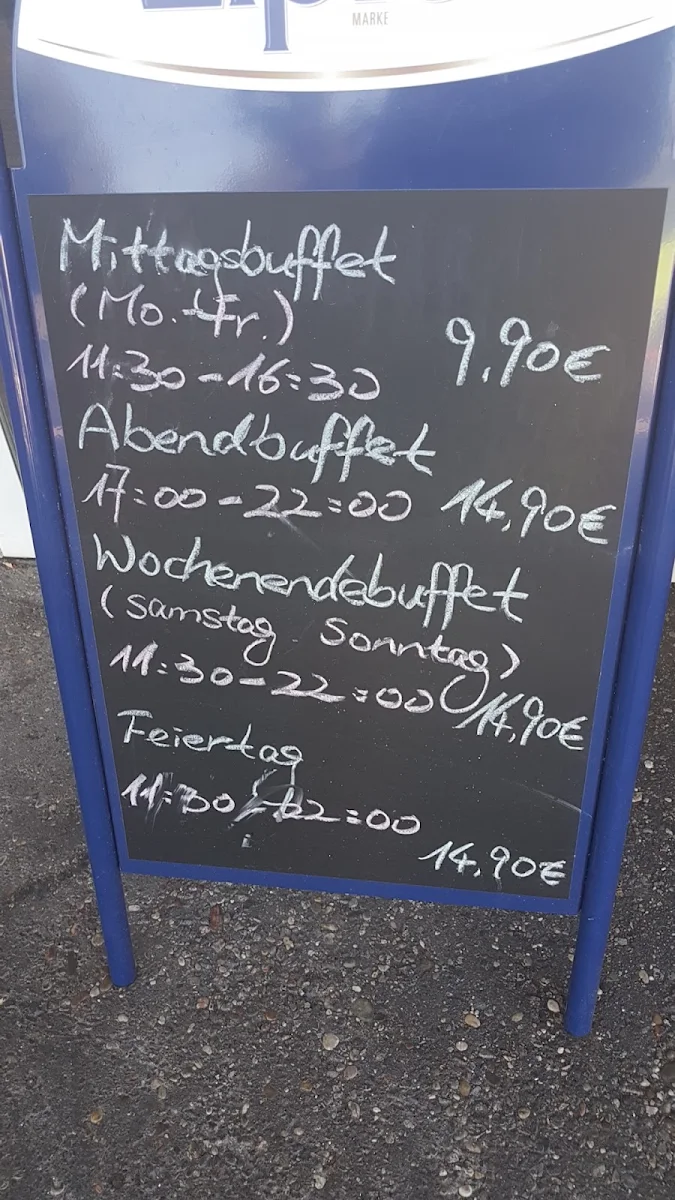 MARKE
Mittagsbuffet
(Mo.-Fr.)
11:30-16:30 9,90€
Abendbuffet
17:00-22:00 14,90€
Wochenendebuffet
(Samstag Sonntag)
11:30-22:00 14,90€
Feiertag
11:30-22:00
14,90€